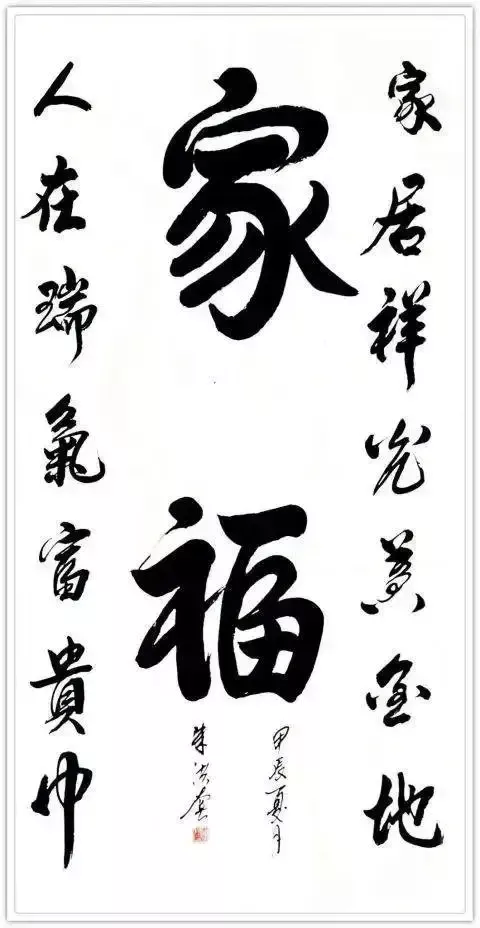 家居祥光黄金地
家福
甲辰夏月
朱洪
人在瑞氣富貴中